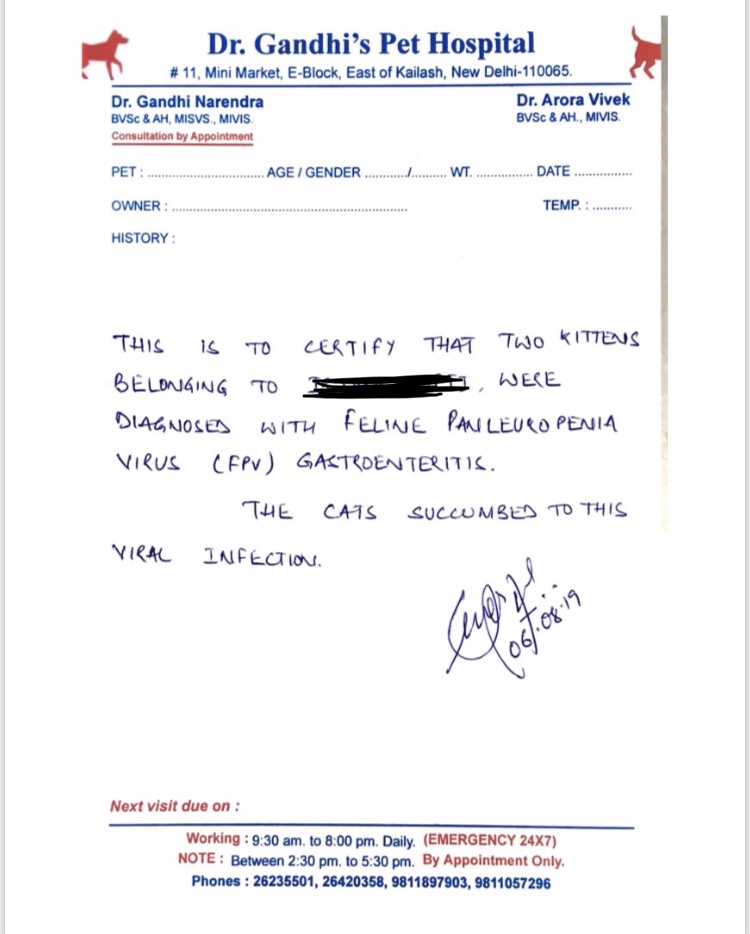 Dr. Gandhi's Pet Hospital
# 11, Mini Market, E-Block, East of Kailash, New Delhi-110065.
Dr. Gandhi Narendra
BVSc & AH, MISVS., MIVIS.
Consultation by Appointment
Dr. Arora Vivek
BVSc & AH., MIVIS.
PET : ................................ AGE / GENDER .........../......... WT. ............... DATE ...............
OWNER : ................................................................ TEMP. : ..........
HISTORY :
THIS IS TO CERTIFY THAT TWO KITTENS
BELONGING TO , WERE
DIAGNOSED WITH FELINE PANLEUROPENIA
VIRUS (FPV) GASTROENTERITIS.
THE CATS SUCCUMBED TO THIS
VIRAL INFECTION.
06/.08.19
Next visit due on :
Working : 9:30 am. to 8:00 pm. Daily. (EMERGENCY 24X7)
NOTE : Between 2:30 pm. to 5:30 pm. By Appointment Only.
Phones : 26235501, 26420358, 9811897903, 9811057296